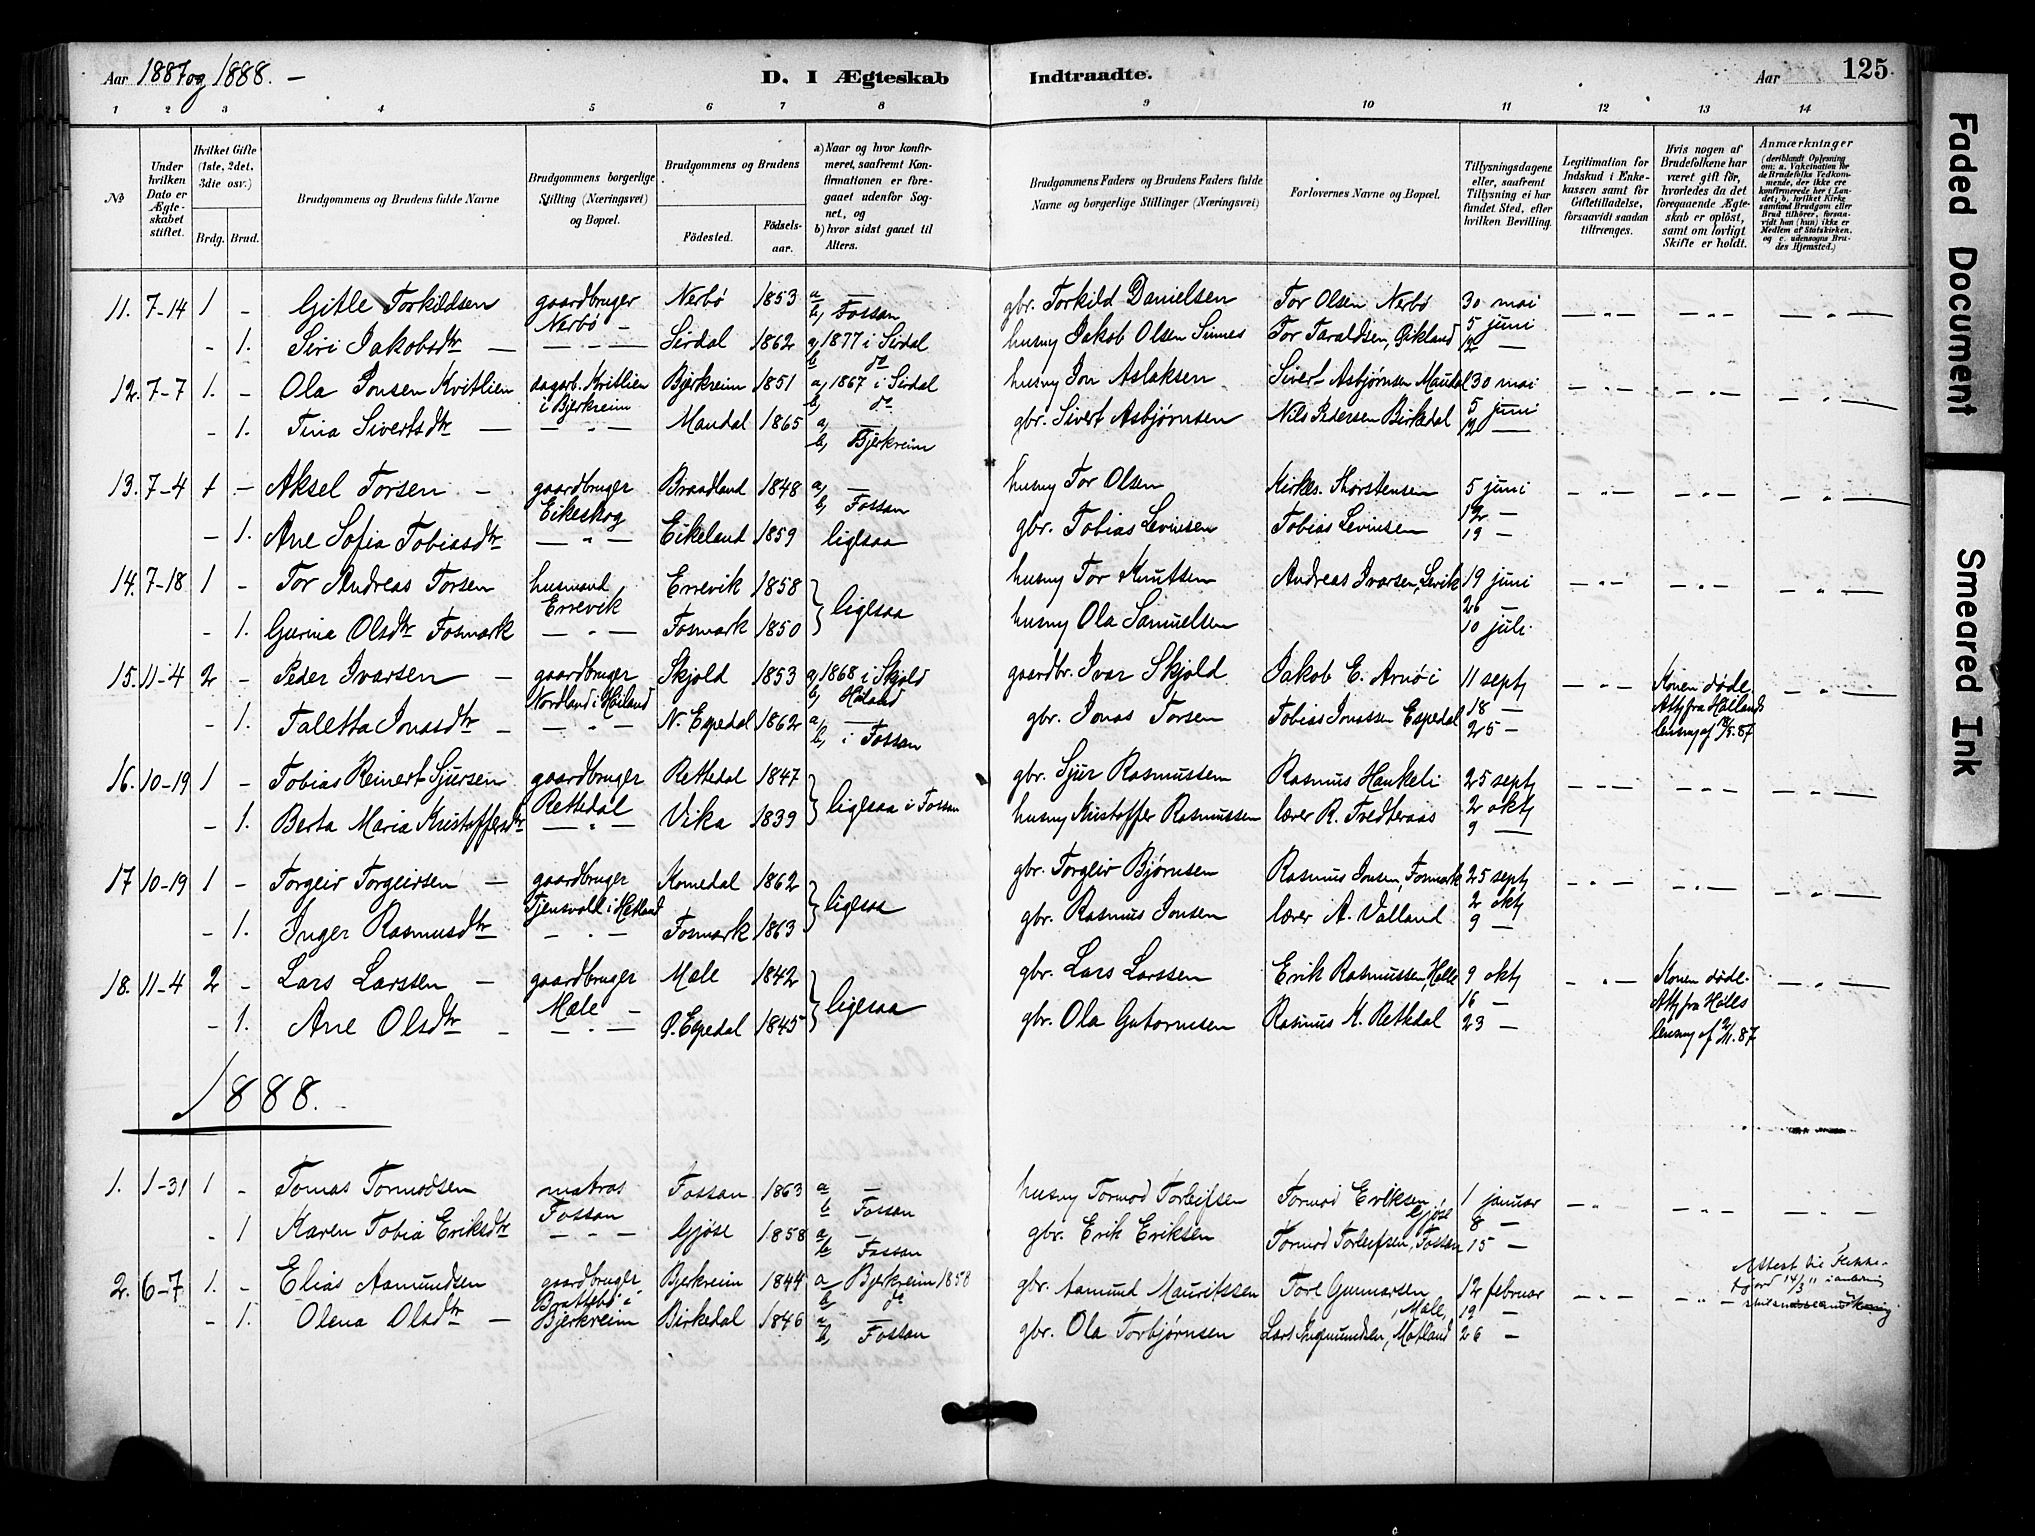 Aar 1887 og 1888. —
D. I Ægteskab Indtraadte.
Aar 125.
1 2 3 4 5 6 7 8 9 10 11 12 13 14
№
Under hvilken Dato er Ægteskabet stiftet.
Hvilket Gifte (1ste, 2det, 3die osv.)
Brdg. Brud.
Brudgommens og Brudens fulde Navne
Brudgommens borgerlige Stilling (Næringsvei) og Bopæl.
Brudgommens og Brudens
Fødested.
Fødselsaar.
a) Naar og hvor konfirmeret, saafremt Konfirmationen er foregaaet udenfor Sognet, og
b) hvor sidst gaaet til Alters.
Brudgommens Faders og Brudens Faders fulde Navne og borgerlige Stillinger (Næringsvei)
Forlovernes Navne og Bopæl.
Tillysningsdagene eller, saafremt Tillysning ei har fundet Sted, efter hvilken Bevilling.
Legitimation for Indskud i Enkekassen samt for Giftetilladelse, forsaavidt saadan tiltrænges.
Hvis nogen af Brudefolkene har været gift før, hvorledes da det foregaaende Ægteskab er opløst, samt om lovligt Skifte er holdt.
Anmærkninger
(deriblandt Oplysning om: a. Vakcination for de Brudefolks Vedkommende, der ikke ere konfirmerede her i Landet; b. hvilket Kirkesamfund Brudgom eller Brud tilhører, forsaavidt han (hun) ikke er Medlem af Statskirken, og c. udensogns Brudes Hjemsted.)
11. 7-14 1 - Gitle Torkildsen gaardbruger Nerbø 1853 a — gbr. Torkild Danielsen Tor Olsen Nerbø 30 mai
Nerbø — b, Fossan 5 juni
- 1. Siri Jakobsdtr — — " — Sirdal 1862 a, 1877 i Sirdal husmg Jakob Olsen Sinnes Tor Taraldsen, Eikland 12 —
b do
12. 7-7 1. - Ola Jonsen Kvitlien dagarb. Kvitlien Bjerkreim 1851 a, 1867 i Sirdal husmg Jon Aslaksen Sivert Asbjørnsen Maudal 30 mai
i Bjerkreim b, do 5 juni
- 1. Tina Sivertsdtr — — " — Maudal 1865 a, — gbr. Sivert Asbjørnsen Nils Pedersen Birkedal 12 —
b, Bjerkreim
13. 7-4 1 - Aksel Torsen — gaardbruger Braadland 1848 a, — husmg Tor Olsen Kirkes. Thorstensen 5 juni
Eikeskog b, Fossan 12 —
- 1. Ane Sofia Tobiasdtr — " — Eikeland 1859 ligesaa gbr. Tobias Levinsen Tobias Levinsen 19 —
14. 7-18 1 - Tor Andreas Torsen husmand Errevik 1858 husmg Tor Knutsen Andreas Ivarsen, Levik 19 juni
Errevik ligesaa 26 —
- 1. Gurina Olsdtr Fosmark — " — Fosmark 1850 husmg Ola Samuelsen 10 juli
15. 11-4 2 - Peder Ivarsen — gaardbruger Skjold 1853 a, 1868 i Skjold gaardbr. Ivar Skjold Jakob E. Arnøi 11 septj Konen døde
Nordland i Høiland b, Høiland 18 — Attj fra Høilands
- 1. Taletta Jonasdtr — — " — N. Espedal 1862 a, — gbr. Jonas Torsen Tobias Jonassen Espedal 25 — lensmg af
b, i Fossan
16. 10-19 1 - Tobias Reinert Sjursen gaardbruger Rettedal 1847 gbr. Sjur Rasmussen Rasmus Haukeli 25 septj
Rettedal ligesaa i Fossan 2 oktj
- 1. Berta Maria Kristoffersdtr — " — Vika 1839 husmg Kristoffer Rasmussen lærer R. Tredteraas 9 —
17 10-19 1 - Torgeir Torgeirsen — gaardbruger Komedal 1862 gbr. Torgeir Bjørnsen Rasmus Jonsen, Fosmark 25 septj
Tjensvoll i Hetland ligesaa 2 oktj
- 1. Inger Rasmusdtr — " — Fosmark 1863 gbr. Rasmus Jonsen lærer A. Valland 9 —
18. 11-4 2 - Lars Larssen — gaardbruger Mæle 1842 gbr. Lars Larssen Erik Rasmussen, Helle 9 oktj Konen døde.
Mæle — ligesaa 16 — Attj fra Høles
- 1. Ane Olsdtr — — " — Ø. Espedal 1845 gbr. Ola Gutormsen Rasmus K. Rettedal 23 — lensmg af 2/11.87
1888.
1. 1-31 1 - Tomas Tormodsen matros Fossan 1863 a — husmg Tormod Torleifsen Tormod Eriksen 1 januar
Fossan b Fossan Gjøse 8 —
- 1 Karen Tobia Eriksdtr — " — Gjøse 1858 a — gbr. Erik Eriksen Tormod Torleifsen, Fossan 15 —
b Fossan
2. 6-7 1. - Elias Aamundsen gaardbruger Bjerkreim 1844 a Bjerkreim 1858 gbr. Aamund Mauritssen Tore Gunnarsen 12 februar Attest
Brattebø i b do Mæle, 19 —
- 1. Olena Olsdtr — Bjerkreim Birkedal 1846 a — gbr. Ola Torbjørnsen Lars Ingmundsen, Motland 26 —
b Fossan
Faded Document
Smeared Ink